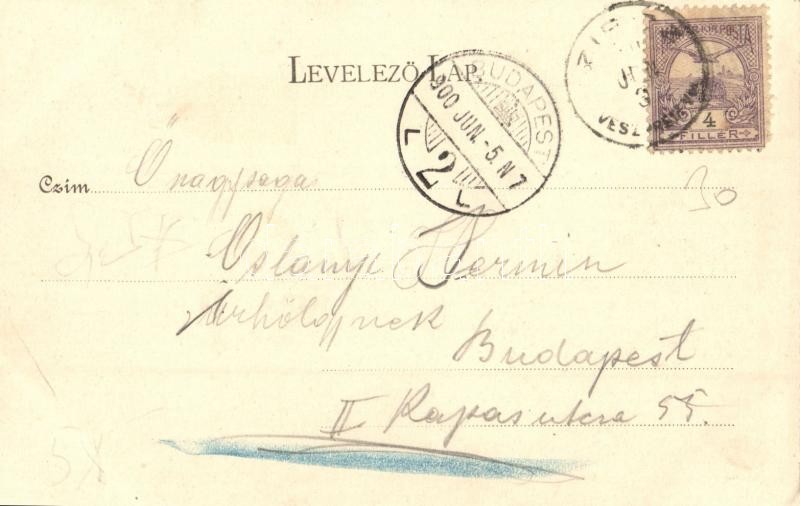 LEVELEZŐ LAP.
MAGYAR KIR. POSTA
4
FILLÉR
ZIRC
VESZPRÉM
BUDAPEST
900 JUN. -5. N 7
L 2 L
30
Czím Ő nagysága
Oslányi Hermin
úrhölgynek
Budapest
II Kapás utcza 55.